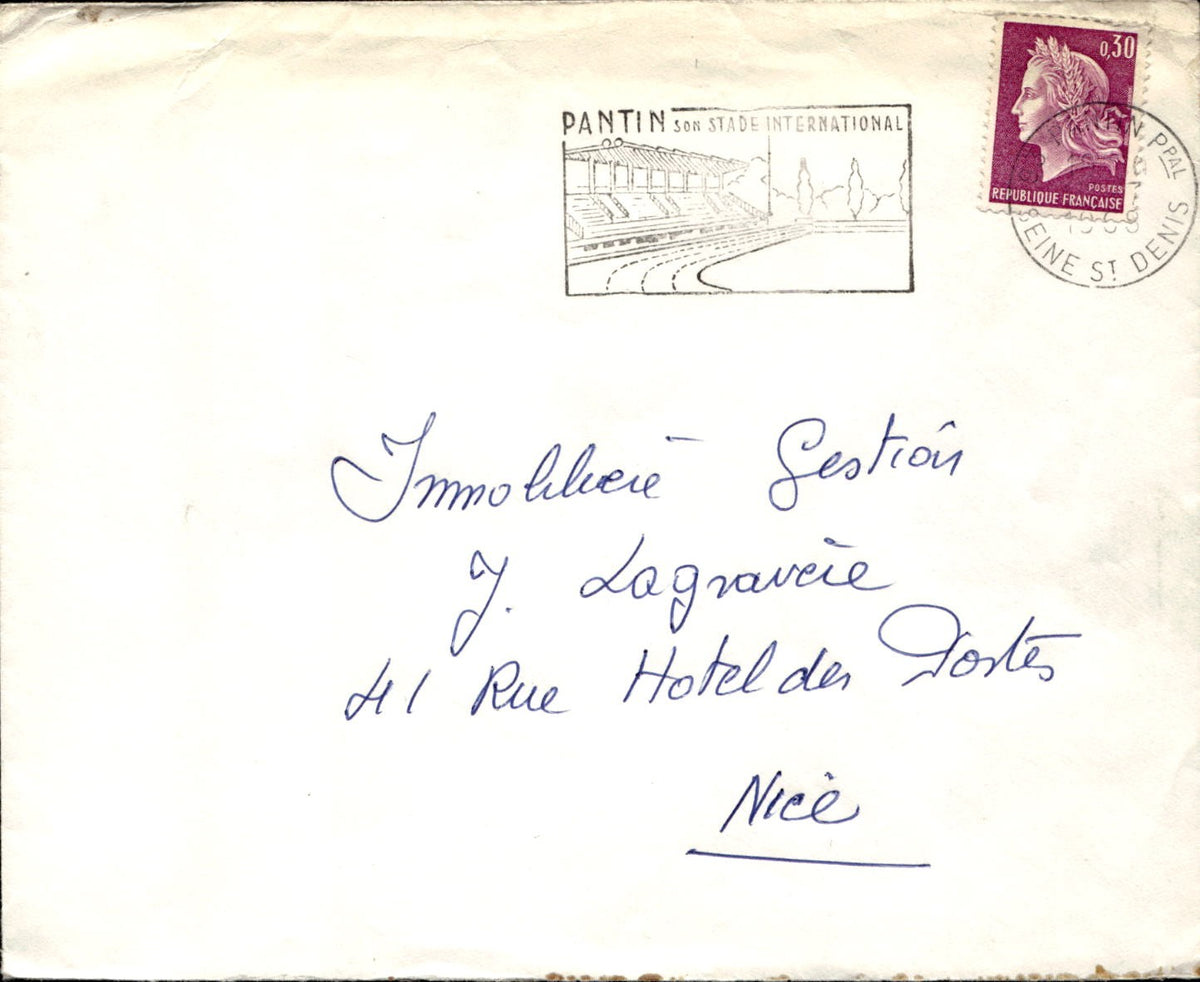 PANTIN SON STADE INTERNATIONAL
0,30
POSTES
REPUBLIQUE FRANÇAISE
PANTIN PPAL
1969
SEINE ST DENIS
Immobilière Gestion
J. Lagravère
41 Rue Hotel des Postes
Nice